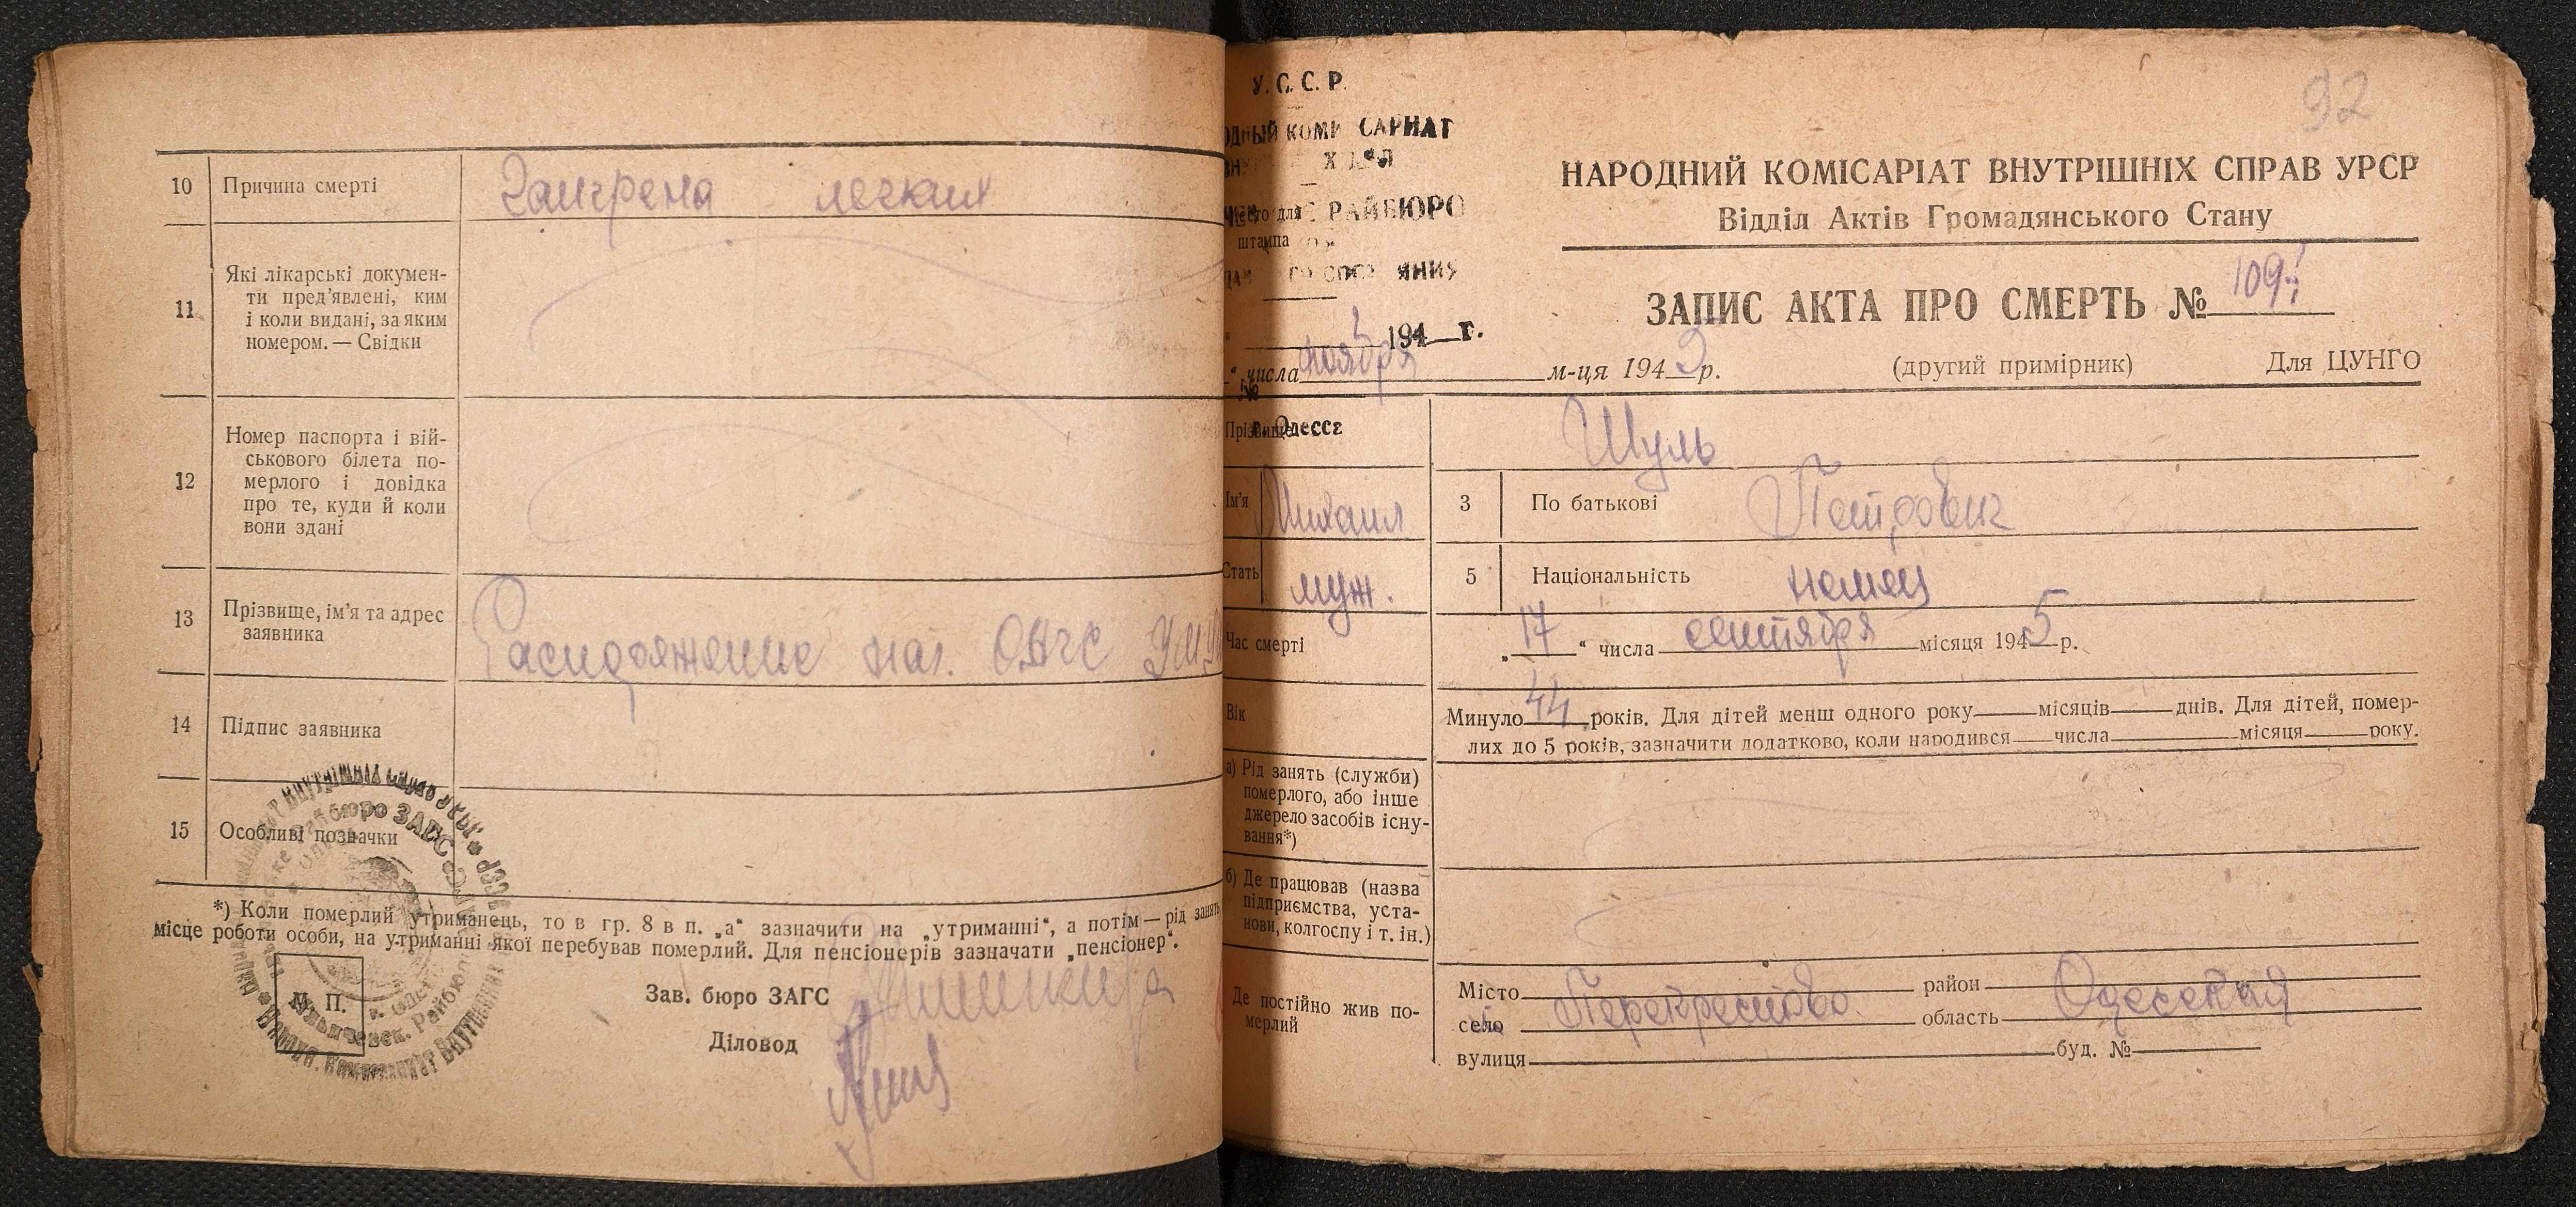 10 Причина смерті Гангрена легких
11 Які лікарські докумен-
ти пред'явлені, ким
і коли видані, за яким
номером. — Свідки
12 Номер паспорта і вій-
ськового білета по-
мерлого і довідка
про те, куди й коли
вони здані
13 Прізвище, ім'я та адрес
заявника
Распоряжение нач. ОАГС
14 Підпис заявника
15 Особливі позначки
*) Коли померлий утриманець, то в гр. 8 в п. „а“ зазначити на „утриманні“, а потім — рід занять
місце роботи особи, на утриманні якої перебував померлий. Для пенсіонерів зазначати „пенсіонер“.
Зав. бюро ЗАГС
Діловод
М. П.
92
У. С. С. Р.
КОМИССАРИАТ
РАЙБЮРО
штампа
194 г.
г. Одесса
НАРОДНИЙ КОМІСАРІАТ ВНУТРІШНІХ СПРАВ УРСР
Відділ Актів Громадянського Стану
ЗАПИС АКТА ПРО СМЕРТЬ №
“ числа ноября м-ця 194 р. (другий примірник) Для ЦУНГО
Прізвище Шуль
Ім'я Михаил 3 По батькові Петрович
Стать муж. 5 Національність немец
Час смерті „17“ числа сентября місяця 1945 р.
Вік Минуло 44 років. Для дітей менш одного року місяців днів. Для дітей, помер-
лих до 5 років, зазначити додатково, коли народився числа місяця року.
а) Рід занять (служби)
померлого, або інше
джерело засобів існу-
вання*)
б) Де працював (назва
підприємства, уста-
нови, колгоспу і т. ін.)
Де постійно жив по-
мерлий
Місто район
село Перекрестово область Одесская
вулиця буд. №